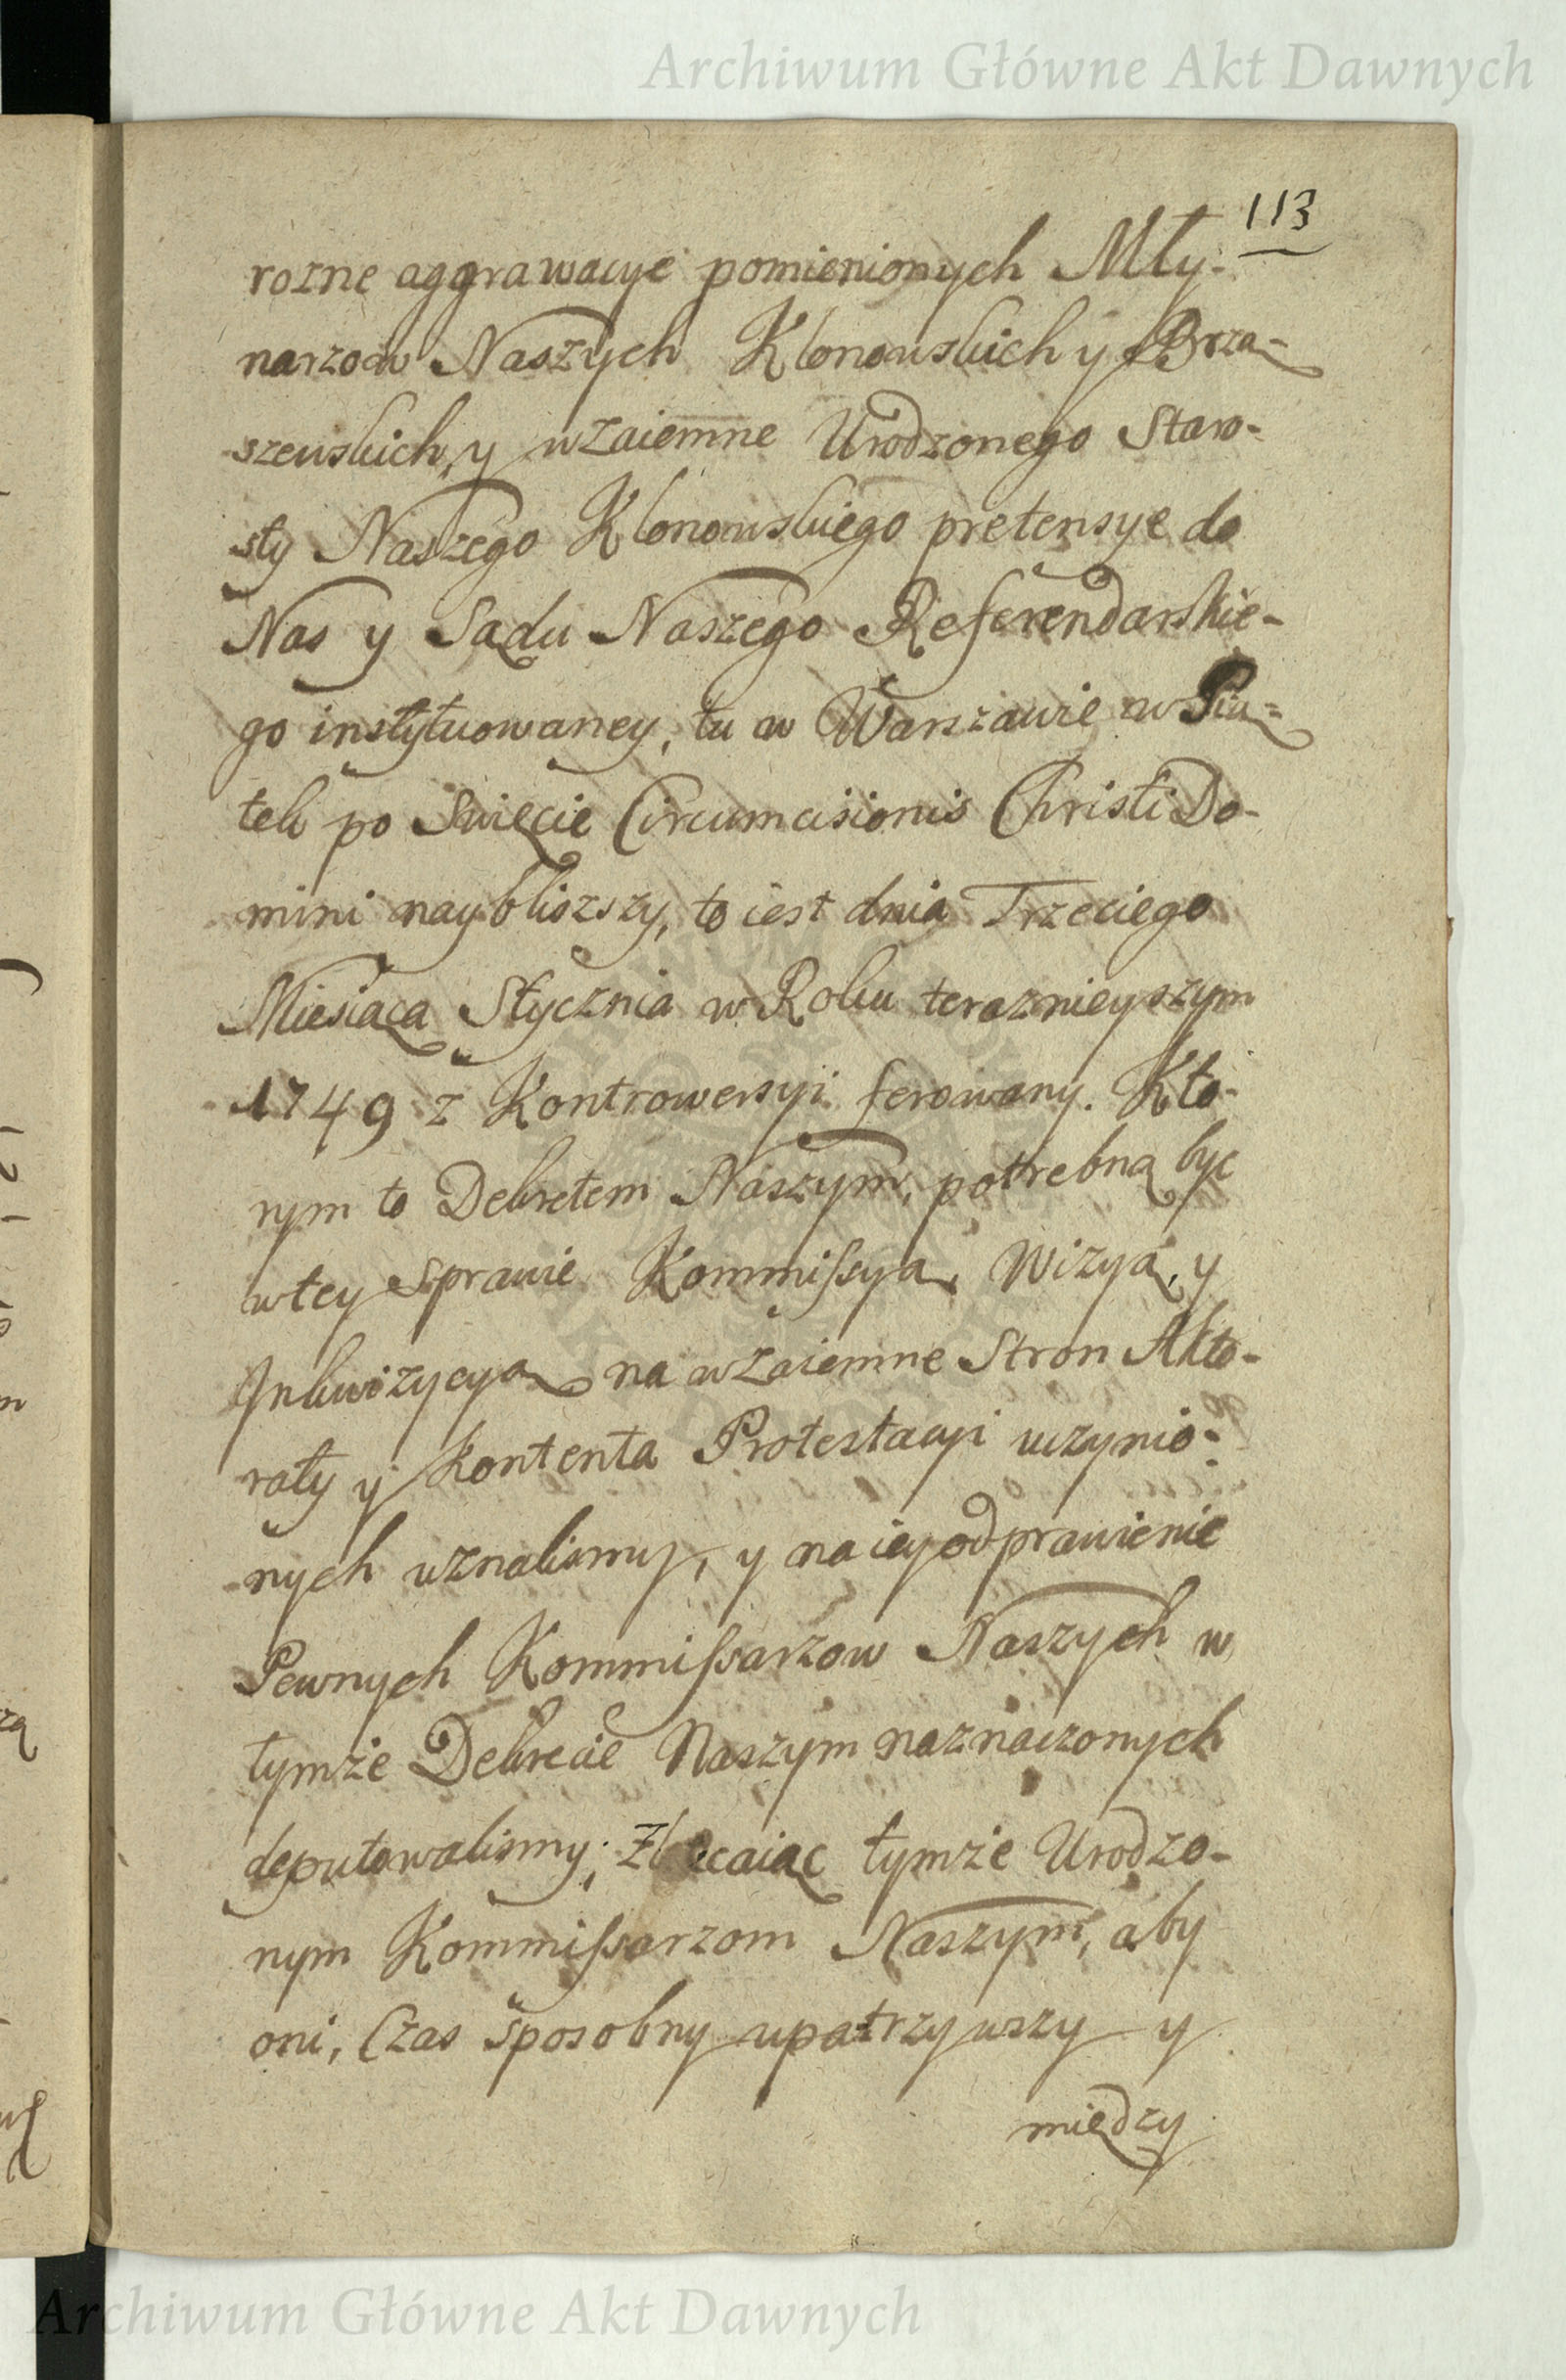 Archiwum Główne Akt Dawnych
113
rozne aggrawacye pomienionych Mły-
narzow Naszych Klonowskich y Brza-
szewskich, y wzaiemne Urodzonego Staro-
sty Naszego Klonowskiego pretensye do
Nas y Sądu Naszego Referendarskie-
go instytuowaney, tu w Warszawie w Pią-
tek po Swięcie Circumcisionis Christi Do-
mini naybliszszy, to iest dnia Trzeciego
Miesiąca Stycznia w Roku teraznieyszym
1749 z Kontrowersyi ferowany. Kto-
rym to Dekretem Naszym, potrebną byc
w tey Sprawie Kommissyą, Wizyą, y
Inkwizycyą na wzaiemne Stron Akto-
raty y Kontenta Protestacyi uczynio-
nych uznalismy, y na iey odprawienie
Pewnych Kommissarzow Naszych w
tymże Dekrecie Naszym naznaczonych
deputowalismy; Zlecaiąc tymże Urodzo-
nym Kommissarzom Naszym, aby
oni, Czas sposobny upatrzywszy y
między
Archiwum Główne Akt Dawnych